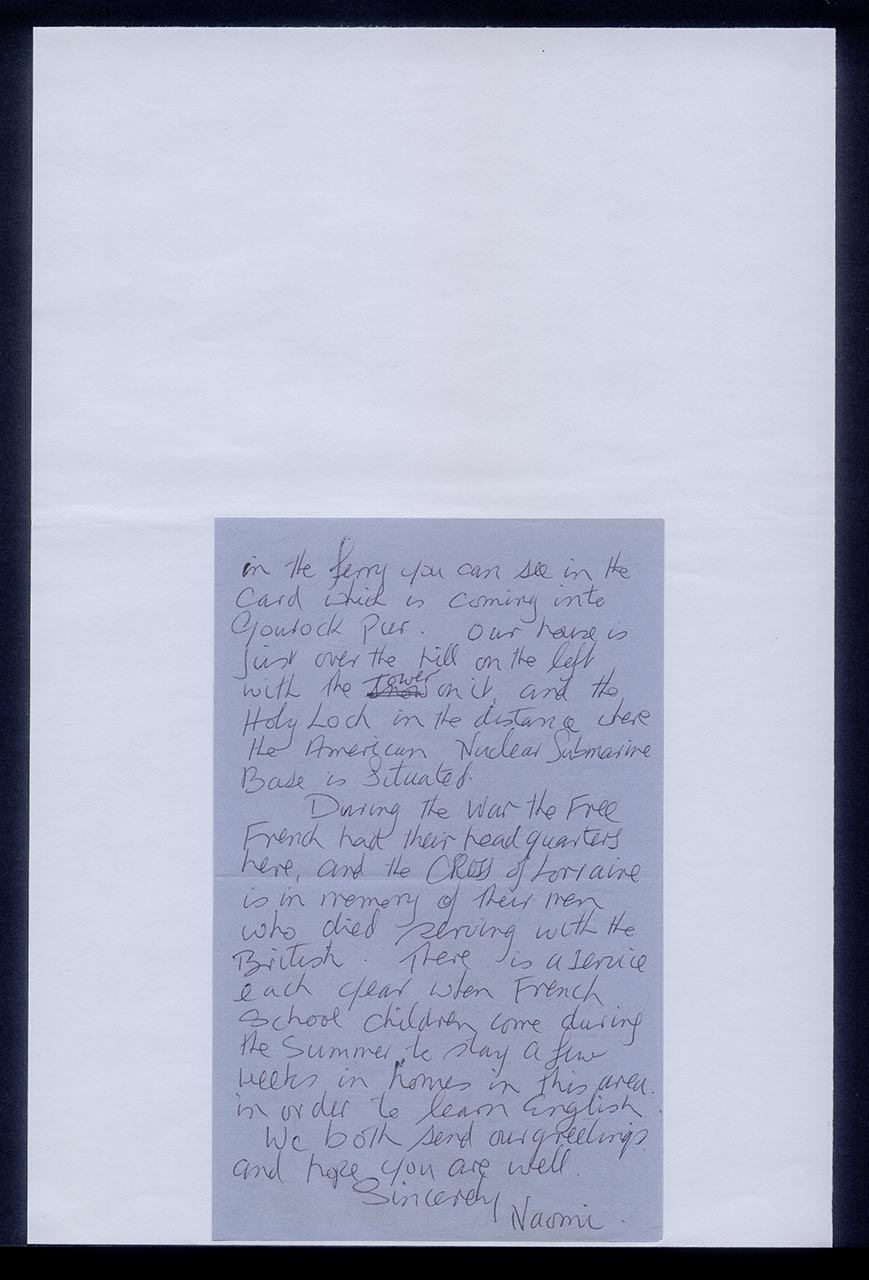 in the ferry you can see in the
Card which is coming into
Gourock Pier. Our house is
just over the hill on the left
with the Tower on it, and the
Holy Loch in the distance where
the American Nuclear Submarine
Base is Situated.
During the War the Free
French had their headquarters
here, and the CROSS of Lorraine
is in memory of their men
who died serving with the
British. There is a service
each year when French
School children come during
the Summer to stay a few
weeks in homes in this area.
in order to learn English.
We both send our greetings
and hope you are well.
Sincerely
Naomi.